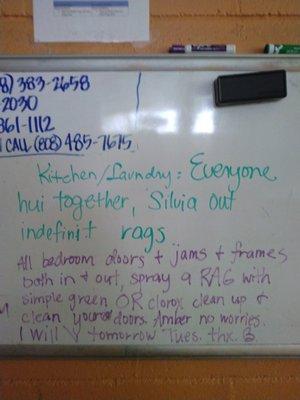 8) 383-2658
-2030
861-1112
CALL (808) 485-7675
Kitchen/Laundry: Everyone
hui together, Silvia out
indefinit rags
All bedroom doors + jams + frames
both in + out, spray a RAG with
simple green OR clorox clean up +
clean your doors. Amber no worries.
I will V tomorrow Tues. thx. B